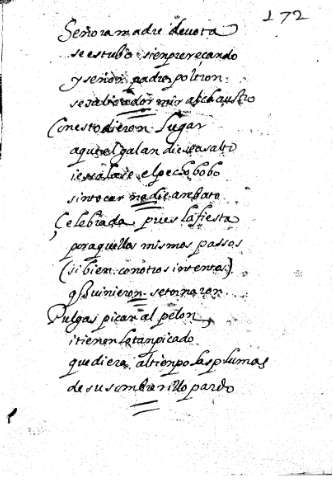 172
Señora madre devota
se estubo sienpre reçando
y señor padre poltron
se salio a dormir al claustro
Con esto dieron lugar
aque el galan diese asalto
i escalase el pecho bobo
sin tocar nadie arebato
Çelebrada pues la fiesta
por aquellos mismos passos
(si bien con otros intentos)
q̃ vinieron se tornaron
Pulgas pican al pelon,
i tienenlo tan picado
que diera al tienpo las plumas
de su sombrerillo pardo